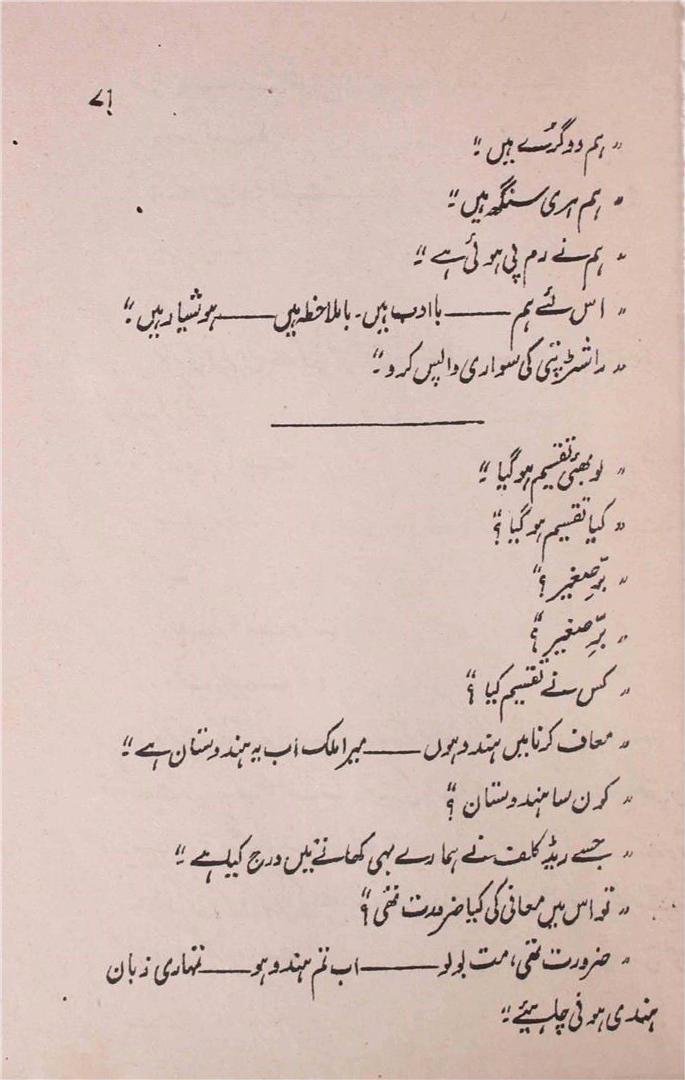 ۷۱
"ہم دوگرے ہیں"
"ہم ہری سنگھ ہیں"
"ہم نے رم پی ہوئی ہے"
"اس لئے ہم —— باادب ہیں۔ باملاخطہ ہیں —— ہوشیار ہیں"
"راشٹرپتی کی سواری واپس کرو"
"لو بھئی تقسیم ہوگیا"
"کیا تقسیم ہوگیا؟"
"برِّصغیر؟"
"برِّصغیر؟"
"کس نے تقسیم کیا؟"
"معاف کرنا میں ہندو ہوں —— میرا ملک اب یہ ہندوستان ہے"
"کون سا ہندوستان؟"
"جسے ریڈ کلف نے ہمارے بہی کھاتے میں درج کیا ہے"
"تو اس میں معافی کی کیا ضرورت تھی؟"
"ضرورت تھی، مت بولو —— اب تم ہندو ہو —— تمہاری زبان
ہندی ہونی چاہیئے"